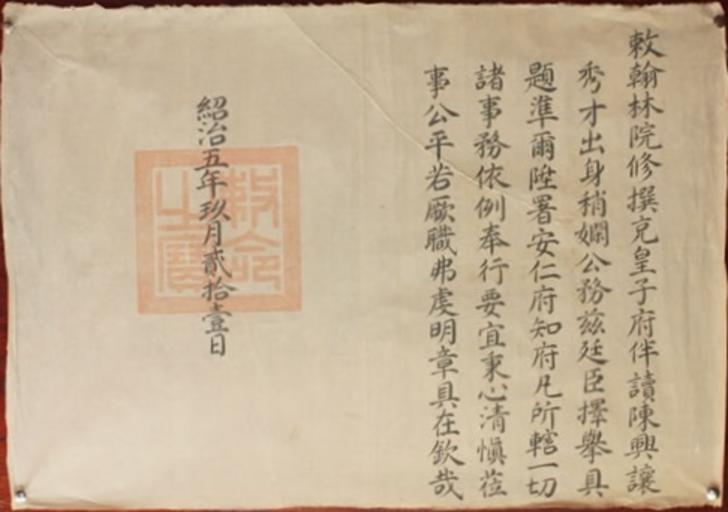 敕翰林院修撰充皇子府伴讀陳興讓
秀才出身稍嫻公務兹廷臣擇舉具
題準爾陞署安仁府知府凡所轄一切
諸事務依例奉行要宜秉心清慎莅
事公平若厥職弗虔明章具在欽哉
紹治五年玖月貳拾壹日
敕命之寶